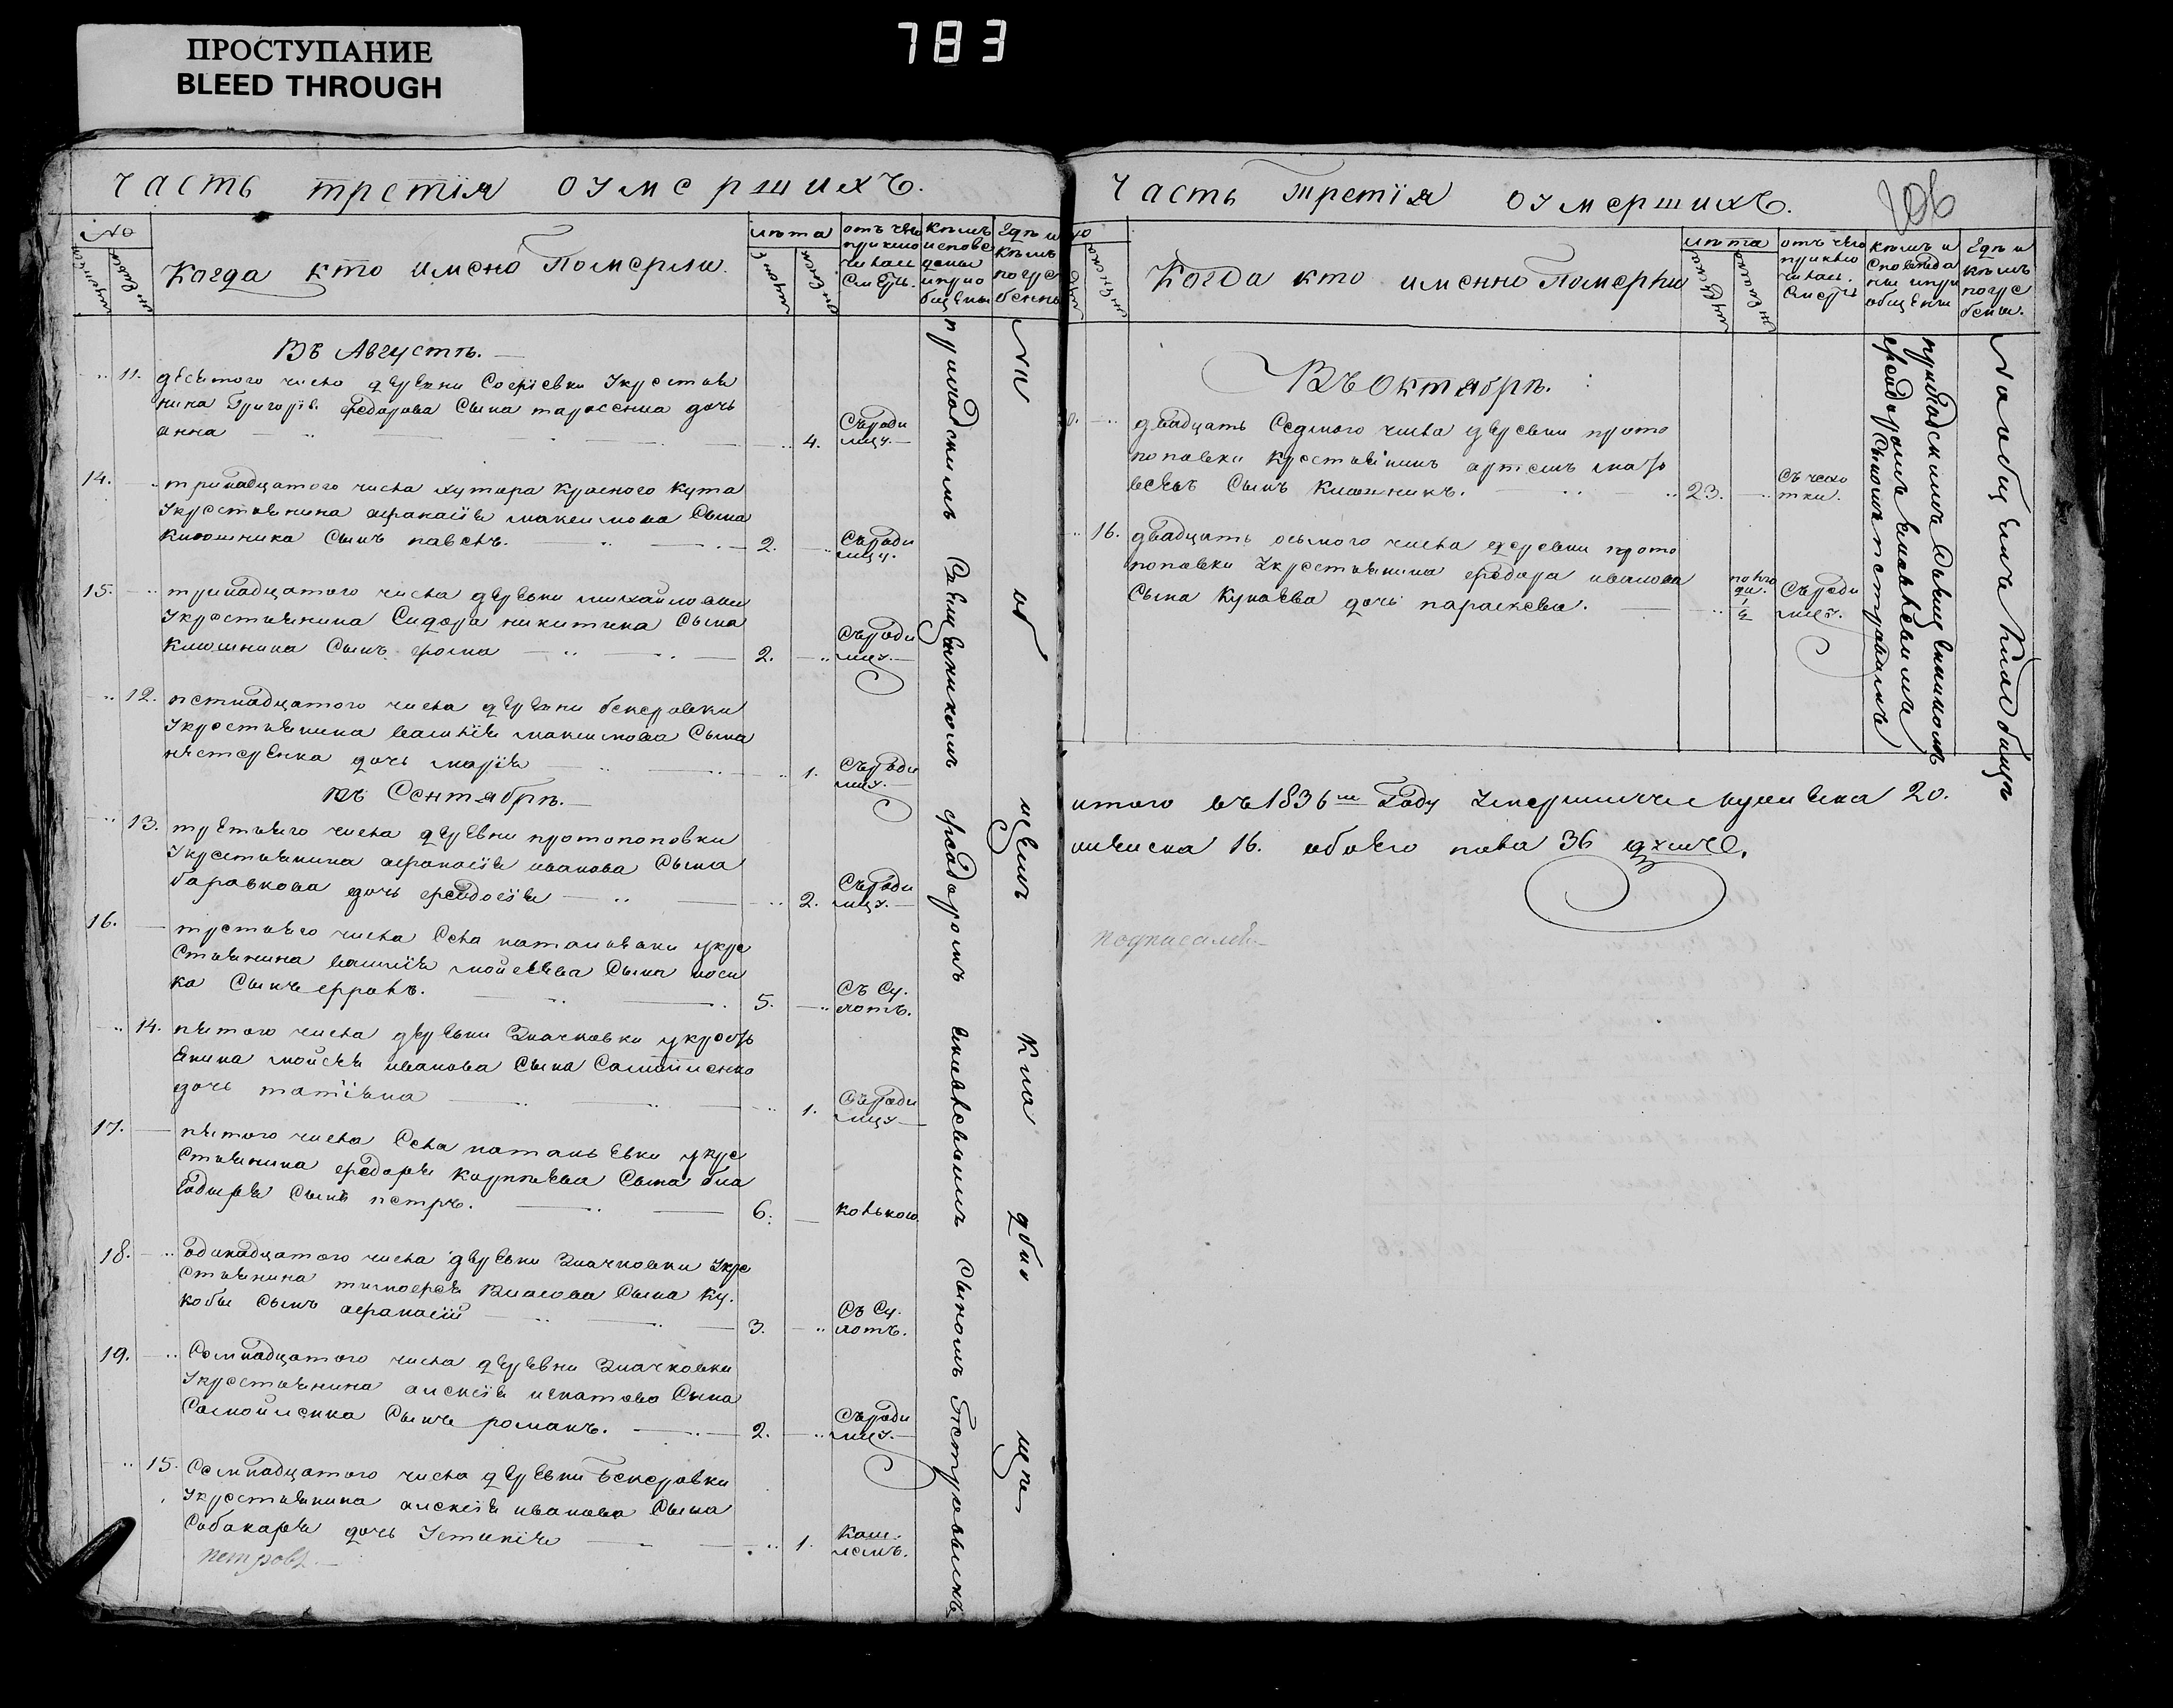 783
ПРОСТУПАНИЕ
BLEED THROUGH
часть третїя оумершихъ.
№
Когда кто имено Померли.
лѣта
отъ чего приклю чилась Смерть.
кѣмъ исповѣ даны и прио бщены
Гдѣ и кѣмъ погре бенны
Въ Августѣ.
11. десятого числа деревни Сергіевки Укрестья
нина Григорія федорова Сына тарасенка дочь
анна 4. Съроди мцу.
14. тринадцатого числа хутора Красного Кута
Укрестьянина афанасія максимова Сына
Клюшника Сынъ павелъ. 2. Съроди мцу.
15. тринадцатого числа деревни михайловки
Укрестьянина Сидора никитина Сына
Клюшника Сынъ фома 2. Съроди мцу.
12. петнадцатого числа деревни бекеровки
Укрестьянина василія максимова Сына
нестеренка дочь марія 1. Съроди мцу.
въ Сентябрѣ.
13. третьяго числа деревни протопоповки
Укрестьянина афанасія иванова Сына
баравкова дочь феодосія 2. Съроди мцу.
16. третьяго числа Села наталовки укре
стьянина василія мойсеева Сына носи
ка Сынъ фролъ. 5. Съ Су. хотъ.
14. пятого числа деревни Значковки укресть
янина мойсея иванова Сына Самойленко
дочь татіяна 1. Съроди мцу
17. пятого числа Села натальевки укре
стьянина федора Карпѣева Сына бла
годыря Сынъ петръ. 6. колькою
18. одинадцатого числа деревни Значковки Укре
стьянина тимофея Власова Сына Ку.
кобы Сынъ афанасій 3. Съ Су. хотъ.
19. Семнадцатого числа деревни Значковки
Укрестьянина алексія игнатова Сына
Самойленка Сынъ романъ. 2. Съроди мцу.
15. Семнадцатого числа деревни Бекеровки
Укрестьянина алексія иванова Сына
Собакаря дочь Устинія 1. Каш. лемъ.
петровъ
приходскимъ Священникомъ феодоромъ алексѣевымъ Сыномъ Петровымъ
На об щемъ Кла дби щѣ
Часть Третїя оумершихъ.
106
Когда кто именно Померли
лѣта
отъ чего приклю чилась Смерть
кѣмъ и Сповѣда ны и при общены
Гдѣ и кѣмъ погре бены.
Въ Октябрѣ.
двадцать Седмого числа деревни прото
поповки Крестьянинъ артемъ
Сынъ Клюшникъ. 23. Съ чехо тки.
16. двадцать осьмого числа деревни прото
поповки Укрестьянина федора иванова
Сына Кунаева дочь параскева. полго да. 1/2 Съроди мцу.
приходскимъ Священникомъ
феодоромъ алексѣевымъ
Сыномъ петровымъ
На общемъ Кладбищѣ
итого въ 1836м Году Умершихъ мужеска 20.
женска 16. обоего пола 36 душъ.
подписалъ